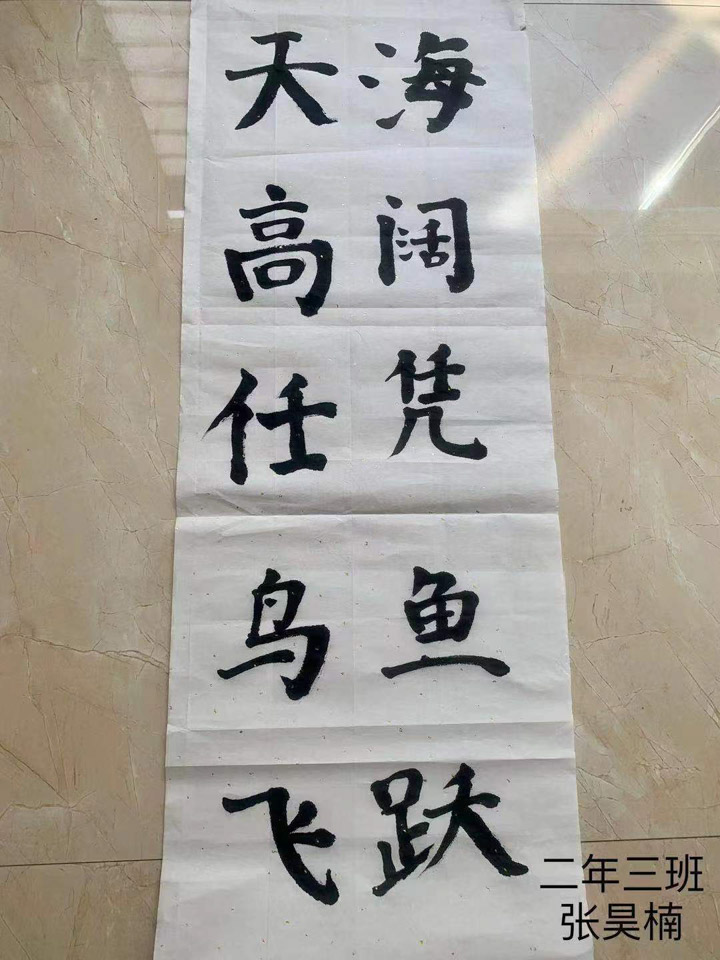 海阔凭鱼跃
天高任鸟飞
二年三班
张昊楠